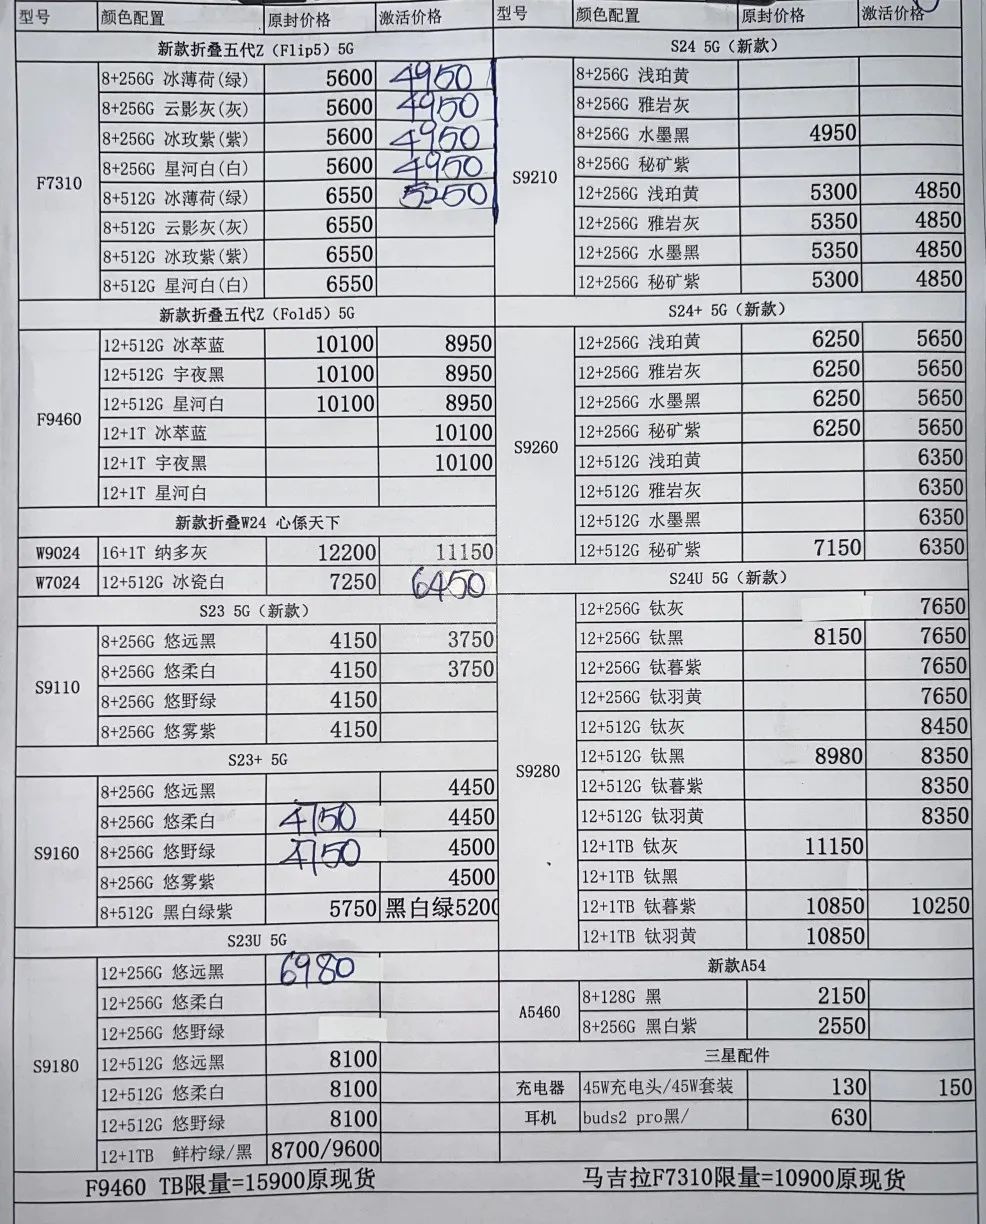 型号 颜色配置 原封价格 激活价格
新款折叠五代Z（Flip5）5G
F7310
8+256G 冰薄荷(绿) 5600 4950
8+256G 云影灰(灰) 5600 4950
8+256G 冰玫紫(紫) 5600 4950
8+256G 星河白(白) 5600 4950
8+512G 冰薄荷(绿) 6550 5250
8+512G 云影灰(灰) 6550
8+512G 冰玫紫(紫) 6550
8+512G 星河白(白) 6550
新款折叠五代Z（Fold5）5G
F9460
12+512G 冰萃蓝 10100 8950
12+512G 宇夜黑 10100 8950
12+512G 星河白 10100 8950
12+1T 冰萃蓝 10100
12+1T 宇夜黑 10100
12+1T 星河白
新款折叠W24 心係天下
W9024 16+1T 纳多灰 12200 11150
W7024 12+512G 冰瓷白 7250 6450
S23 5G（新款）
S9110
8+256G 悠远黑 4150 3750
8+256G 悠柔白 4150 3750
8+256G 悠野绿 4150
8+256G 悠雾紫 4150
S23+ 5G
S9160
8+256G 悠远黑 4450
8+256G 悠柔白 4750 4450
8+256G 悠野绿 4750 4500
8+256G 悠雾紫 4500
8+512G 黑白绿紫 5750 黑白绿5200
S23U 5G
S9180
12+256G 悠远黑 6980
12+256G 悠柔白
12+256G 悠野绿
12+512G 悠远黑 8100
12+512G 悠柔白 8100
12+512G 悠野绿 8100
12+1TB 鲜柠绿/黑 8700/9600
型号 颜色配置 原封价格 激活价格
S24 5G（新款）
S9210
8+256G 浅珀黄
8+256G 雅岩灰
8+256G 水墨黑 4950
8+256G 秘矿紫
12+256G 浅珀黄 5300 4850
12+256G 雅岩灰 5350 4850
12+256G 水墨黑 5350 4850
12+256G 秘矿紫 5300 4850
S24+ 5G（新款）
S9260
12+256G 浅珀黄 6250 5650
12+256G 雅岩灰 6250 5650
12+256G 水墨黑 6250 5650
12+256G 秘矿紫 6250 5650
12+512G 浅珀黄 6350
12+512G 雅岩灰 6350
12+512G 水墨黑 6350
12+512G 秘矿紫 7150 6350
S24U 5G（新款）
S9280
12+256G 钛灰 7650
12+256G 钛黑 8150 7650
12+256G 钛暮紫 7650
12+256G 钛羽黄 7650
12+512G 钛灰 8450
12+512G 钛黑 8980 8350
12+512G 钛暮紫 8350
12+512G 钛羽黄 8350
12+1TB 钛灰 11150
12+1TB 钛黑
12+1TB 钛暮紫 10850 10250
12+1TB 钛羽黄 10850
新款A54
A5460
8+128G 黑 2150
8+256G 黑白紫 2550
三星配件
充电器 45W充电头/45W套装 130 150
耳机 buds2 pro黑/ 630
F9460 TB限量=15900原现货
马吉拉F7310限量=10900原现货